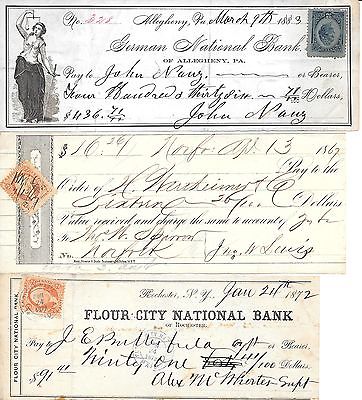 No. 221 Allegheny, Pa. March 9th 1883
German National Bank
OF ALLEGHENY, PA.
Pay to John Nanz or Bearer,
Four Hundred Thirty Six 71/100 Dollars,
$436.71 John Nanz
$16.26/100 Norfolk Apl 13 1867
Pay to the
Order of H. Wertheimer & Co
Sixteen 26/100 Dollars
Value received, and charge the same to account of
To Thos. W.
No. Norfolk Jno. W. Lewis
Rochester, N.Y. Jan 24th 1872
FLOUR CITY NATIONAL BANK
OF ROCHESTER,
FLOUR CITY NATIONAL BANK.
Pay to J E Butterfield or Bearer,
Ninety One 41/100 Dollars.
$91.41 Alex McWhorter Supt